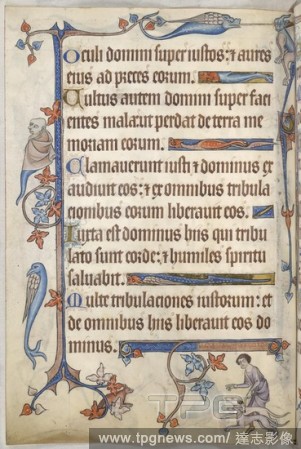 Oculi domini super iustos: et aures
eius ad preces eorum.
Vultus autem domini super faci
entes mala: ut perdat de terra me
moriam eorum.
Clamaverunt iusti et dominus ex
audivit eos: et ex omnibus tribula
cionibus eorum liberauit eos.
Iuxta est dominus hiis qui tribu
lato sunt corde: et humiles spiritu
saluabit.
Multe tribulaciones iustorum: et
de omnibus hiis liberauit eos do
minus.
TPG
www.tpgnews.com/ 達志影像